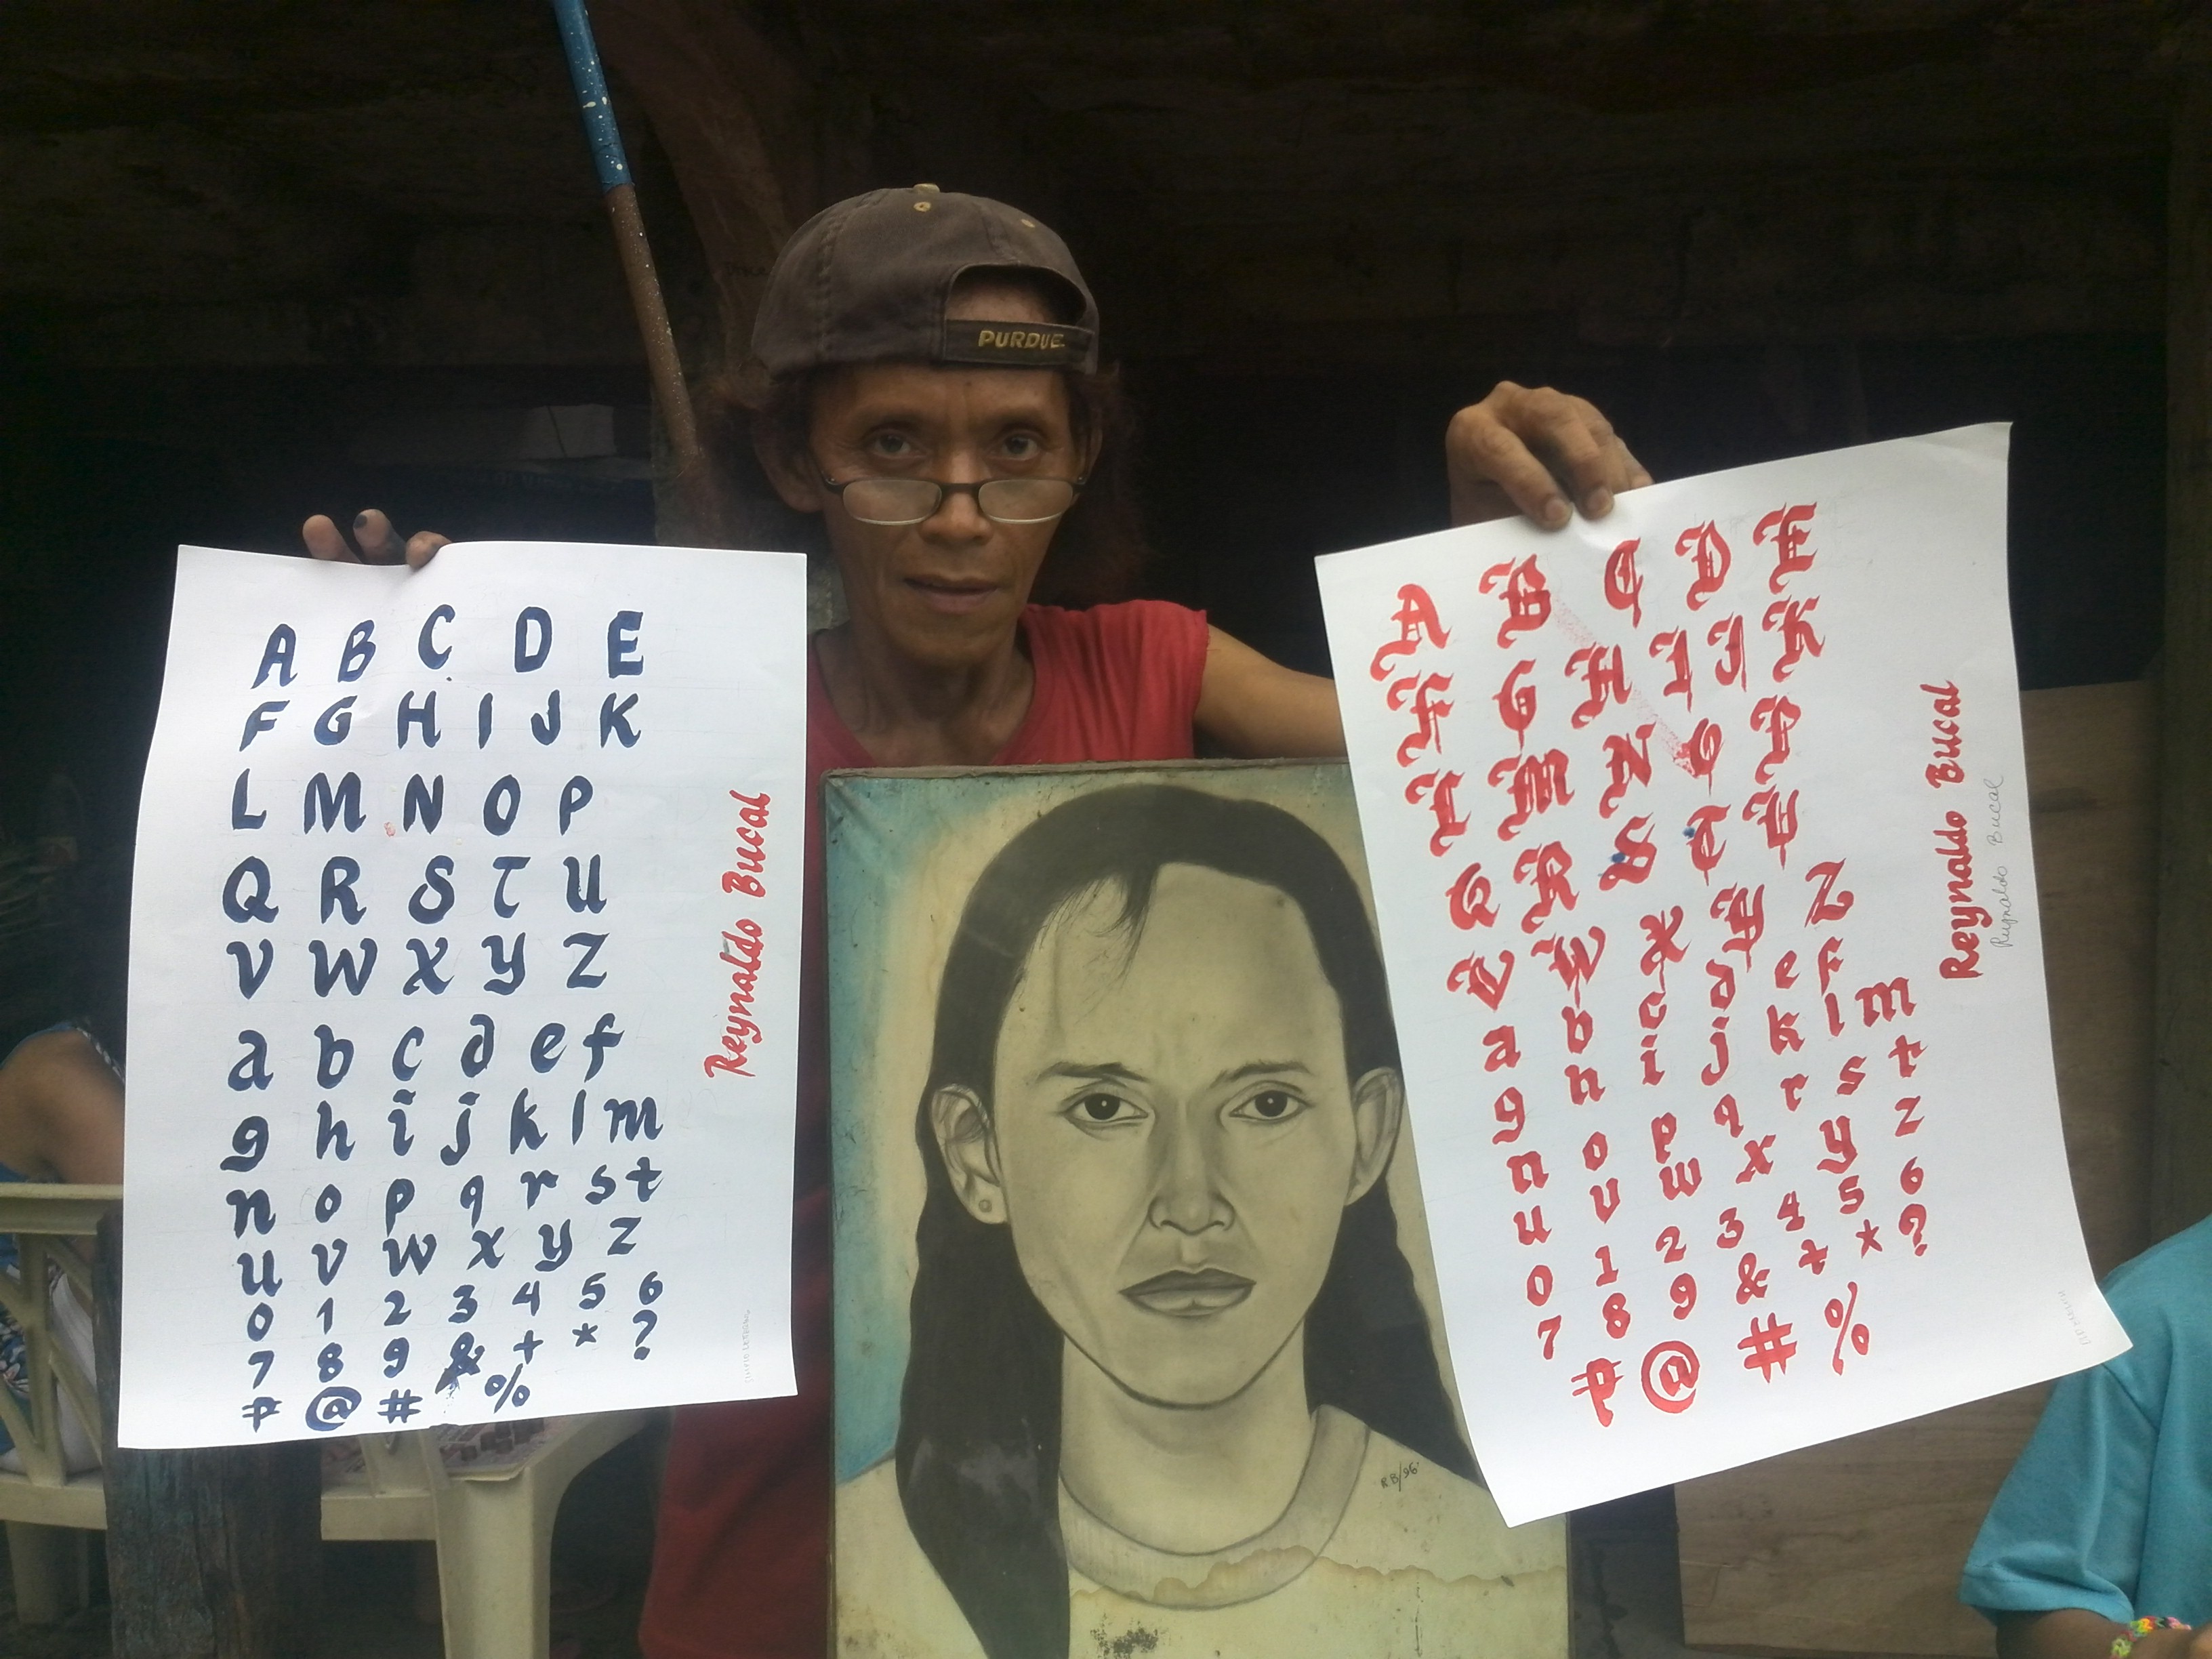 PURDUE
A B C D E
F G H I J K
L M N O P
Q R S T U
V W X Y Z
a b c d e f
g h i j k l m
n o p q r s t
u v w x y z
0 1 2 3 4 5 6
7 8 9 & + * ?
₱ @ # %
Reynaldo Bucal
A B C D E
F G H I J K
L M N O P
Q R S T U
V W X Y Z
a b c d e f
g h i j k l m
n o p q r s t
u v w x y z
0 1 2 3 4 5 6
7 8 9 & + * ?
₱ @ # %
Reynaldo Bucal
Reynaldo Bucal
R.B/96